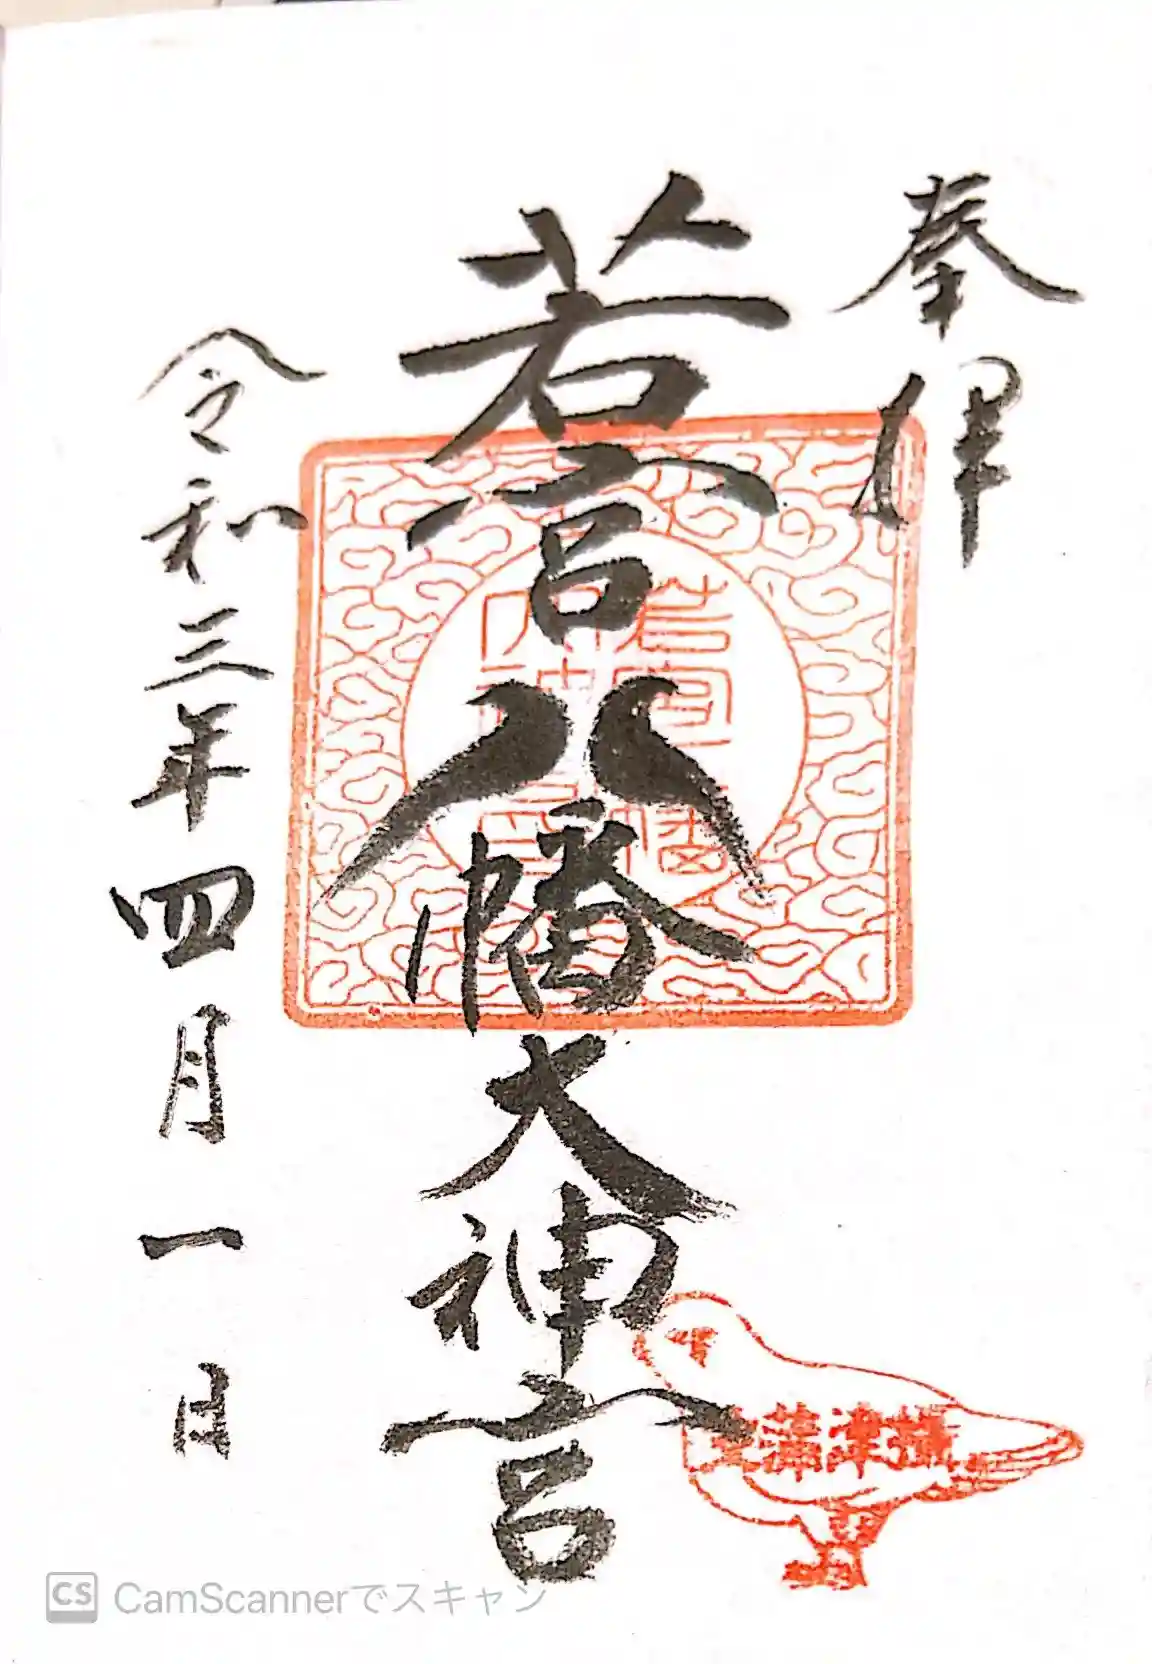 奉拝
若宮八幡大神宮
令和三年四月一日
若宮八幡
攝津蒲生
CS CamScannerでスキャン